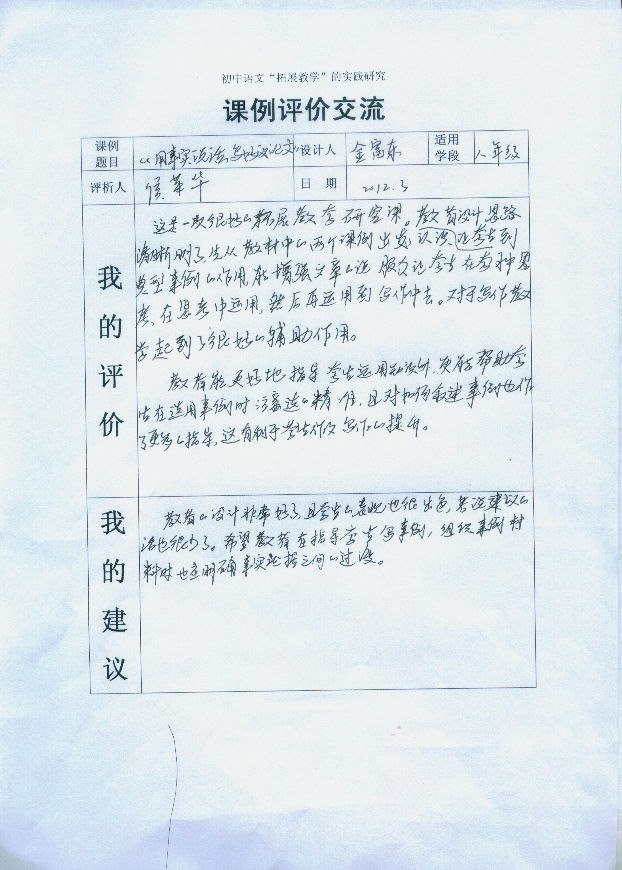 初中语文“拓展教学”的实践研究
课例评价交流
课例题目 《用事实说话,写好议论文》 设计人 金富东 适用学段 八年级
评析人 侯華华 日期 2012.3
我的评价
这是一次很好的拓展教学研究课。教者设计思路
清晰明了,先从教材中的两个课例出发,认识
典型事例的作用,能增强文章的说服力,让学生在
在思考中运用,然后再运用到写作中去。对于写作教
学起到了很好的辅助作用。
教者能更好地指导学生运用,帮助学
生在选用事例时精准,且对如何叙述事例也作
了更多的指导,这有利于学生作文写作的提升。
我的建议
教者的设计非常好了,且学生的表现也很出色,若说建议的
话也很少了。希望教者在指导学生写事例,组织事例材
料时也应明确事实论据之间的过渡。